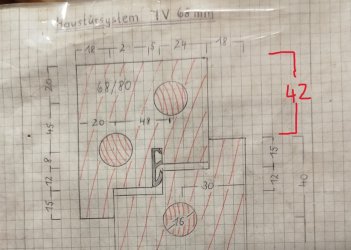 Haustürsystem IV 68 mm
18 2 5 24 18
20
68/80
42
45
20 48
15
8
12
12
40
30
15
16